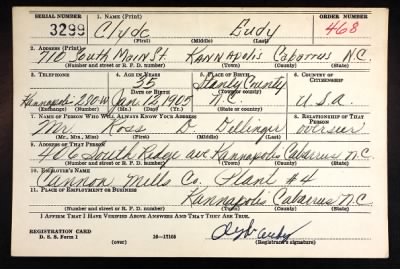 SERIAL NUMBER 1. NAME (Print) ORDER NUMBER
3299 Clyde Eudy 468
(First) (Middle) (Last)
2. ADDRESS (Print)
710 South Main St. Kannapolis Cabarrus N.C.
(Number and street or R. F. D. number) (Town) (County) (State)
3. TELEPHONE 4. AGE IN YEARS 5. PLACE OF BIRTH 6. COUNTRY OF CITIZENSHIP
35 Stanly County
DATE OF BIRTH (Town) (County)
Kannapolis 280W Jan. 1905 N.C. U.S.A.
(Exchange) (Number) (Mo.) (Day) (Yr.) (State or country)
7. NAME OF PERSON WHO WILL ALWAYS KNOW YOUR ADDRESS 8. RELATIONSHIP OF THAT PERSON
Mr. Ross D. Dellinger overseer
(Mr., Mrs., Miss) (First) (Middle) (Last)
9. ADDRESS OF THAT PERSON
406 South Ridge ave Kannapolis Cabarrus N.C.
(Number and street or R. F. D. number) (Town) (County) (State)
10. EMPLOYER'S NAME
Cannon Mills Co. Plant #4
11. PLACE OF EMPLOYMENT OR BUSINESS
Kannapolis Cabarrus N.C.
(Number and street or R. F. D. number) (Town) (County) (State)
I AFFIRM THAT I HAVE VERIFIED ABOVE ANSWERS AND THAT THEY ARE TRUE.
REGISTRATION CARD
D. S. S. Form 1 (over) 16-17105 (Registrant's signature)